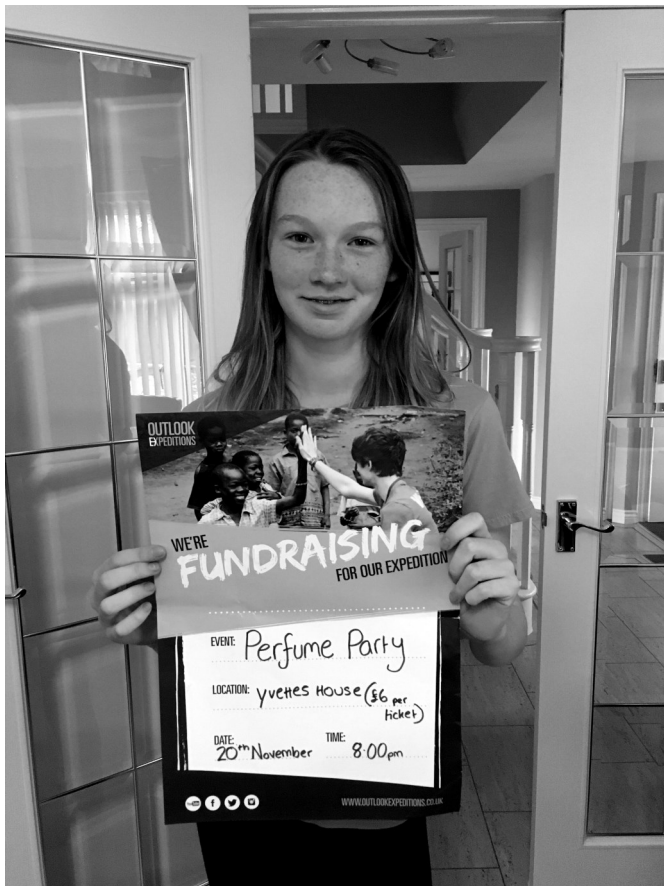 OUTLOOK
EXPEDITIONS
WE'RE
FUNDRAISING
FOR OUR EXPEDITION
EVENT: Perfume Party
LOCATION: Yvettes House (£6 per
ticket)
DATE: TIME:
20th November 8:00pm
WWW.OUTLOOKEXPEDITIONS.CO.UK